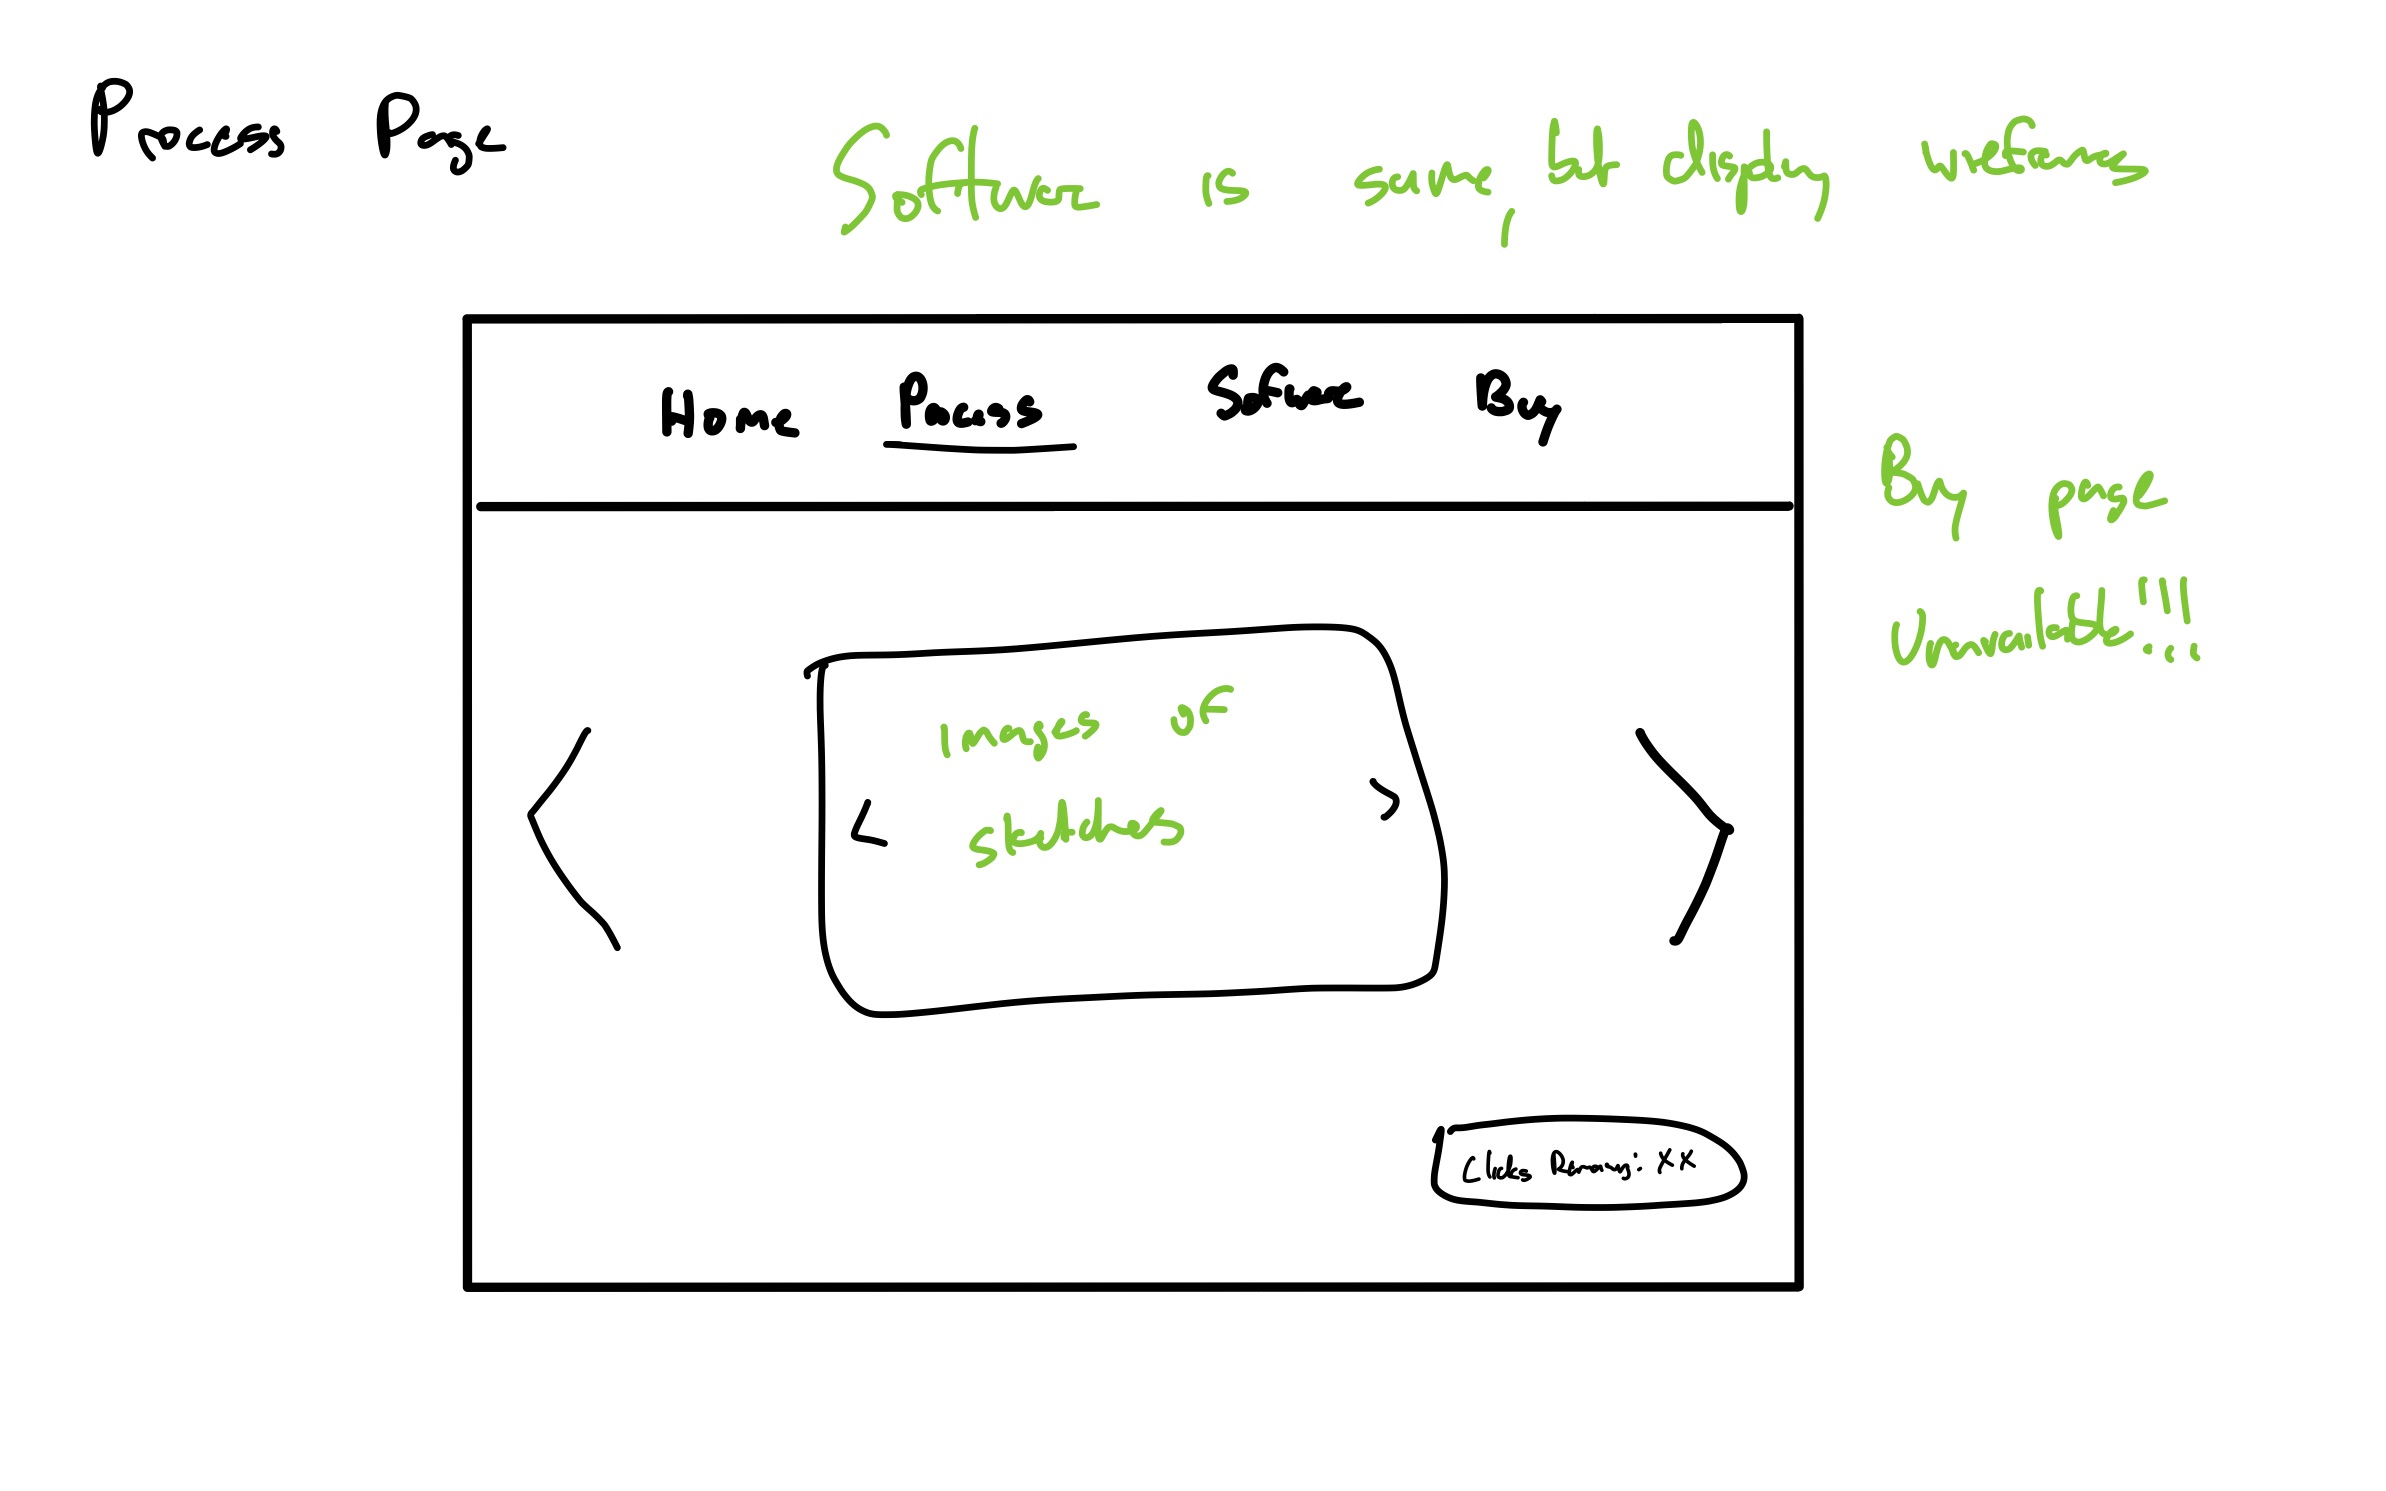 Process Page
Software is same, but display wireframes
Home Process Software Buy
Buy page
Unavailable!!!
images of
sketches
< >
Clicks Remaining: XX